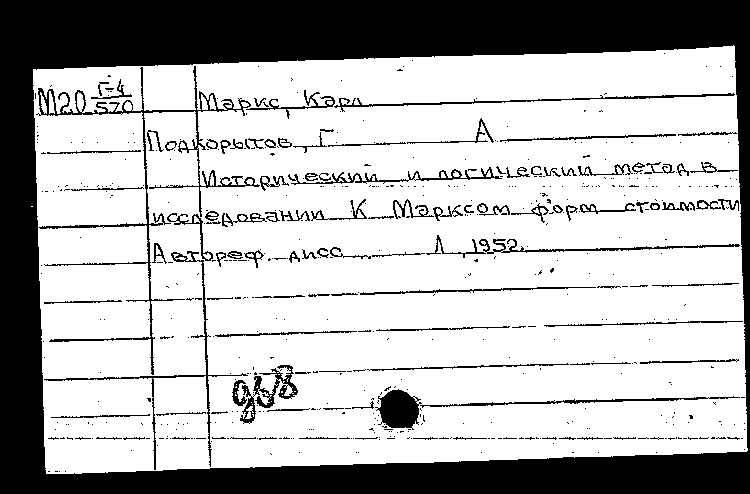 М20 Г-4/570 Маркс, Карл
Подкорытов, Г А
Исторический и логический метод в
исследовании К Марксом форм стоимости
Автореф. дисс ... Л , 1952.
968